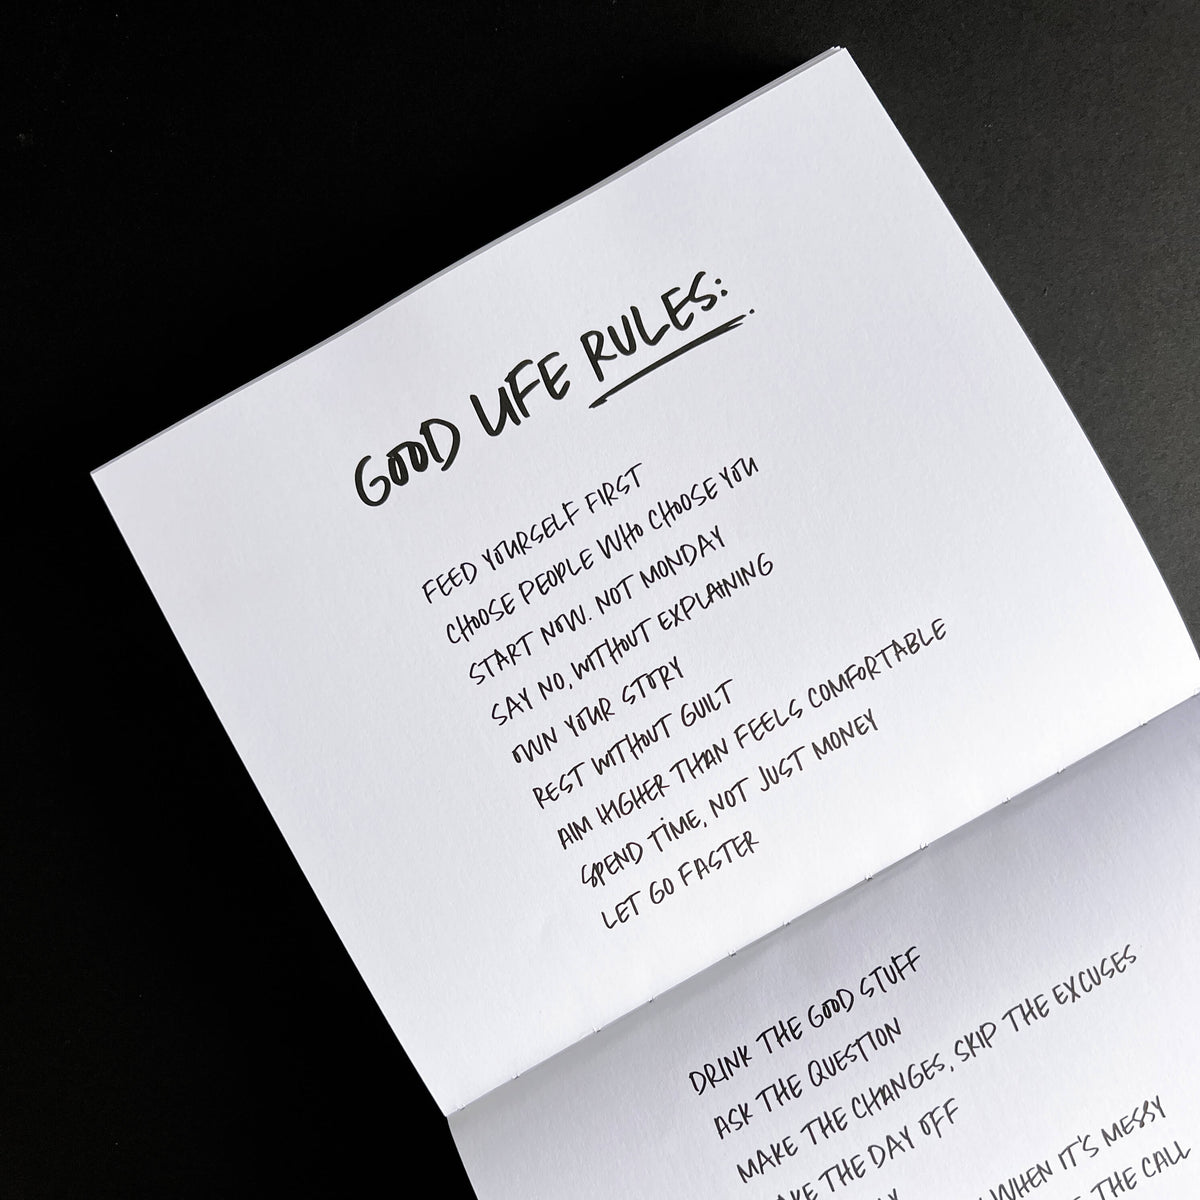 GOOD LIFE RULES:
FEED YOURSELF FIRST
CHOOSE PEOPLE WHO CHOOSE YOU
START NOW. NOT MONDAY
SAY NO, WITHOUT EXPLAINING
OWN YOUR STORY
REST WITHOUT GUILT
AIM HIGHER THAN FEELS COMFORTABLE
SPEND TIME, NOT JUST MONEY
LET GO FASTER
DRINK THE GOOD STUFF
ASK THE QUESTION
MAKE THE CHANGES, SKIP THE EXCUSES
THE DAY OFF
WHEN IT'S MESSY
THE CALL